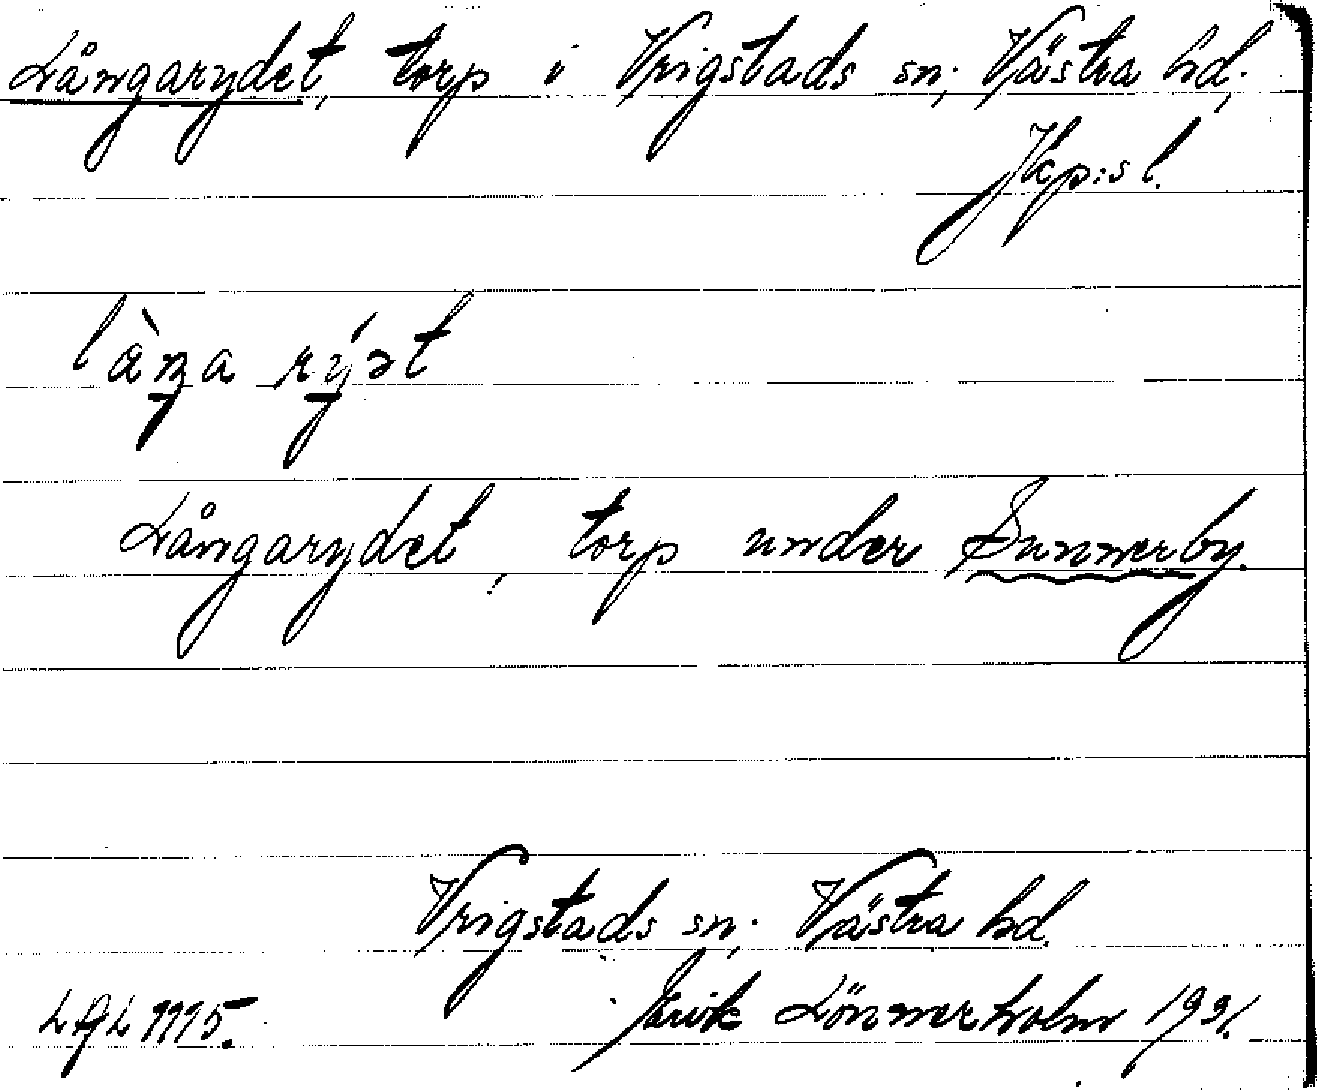 Långarydet, torp i Vrigstads sn, Västra hd,
Jkp:s l.
làŋa rýət
Långarydet, torp under Sunnerby.
Vrigstads sn, Västra hd.
Lönnerholm 1931.